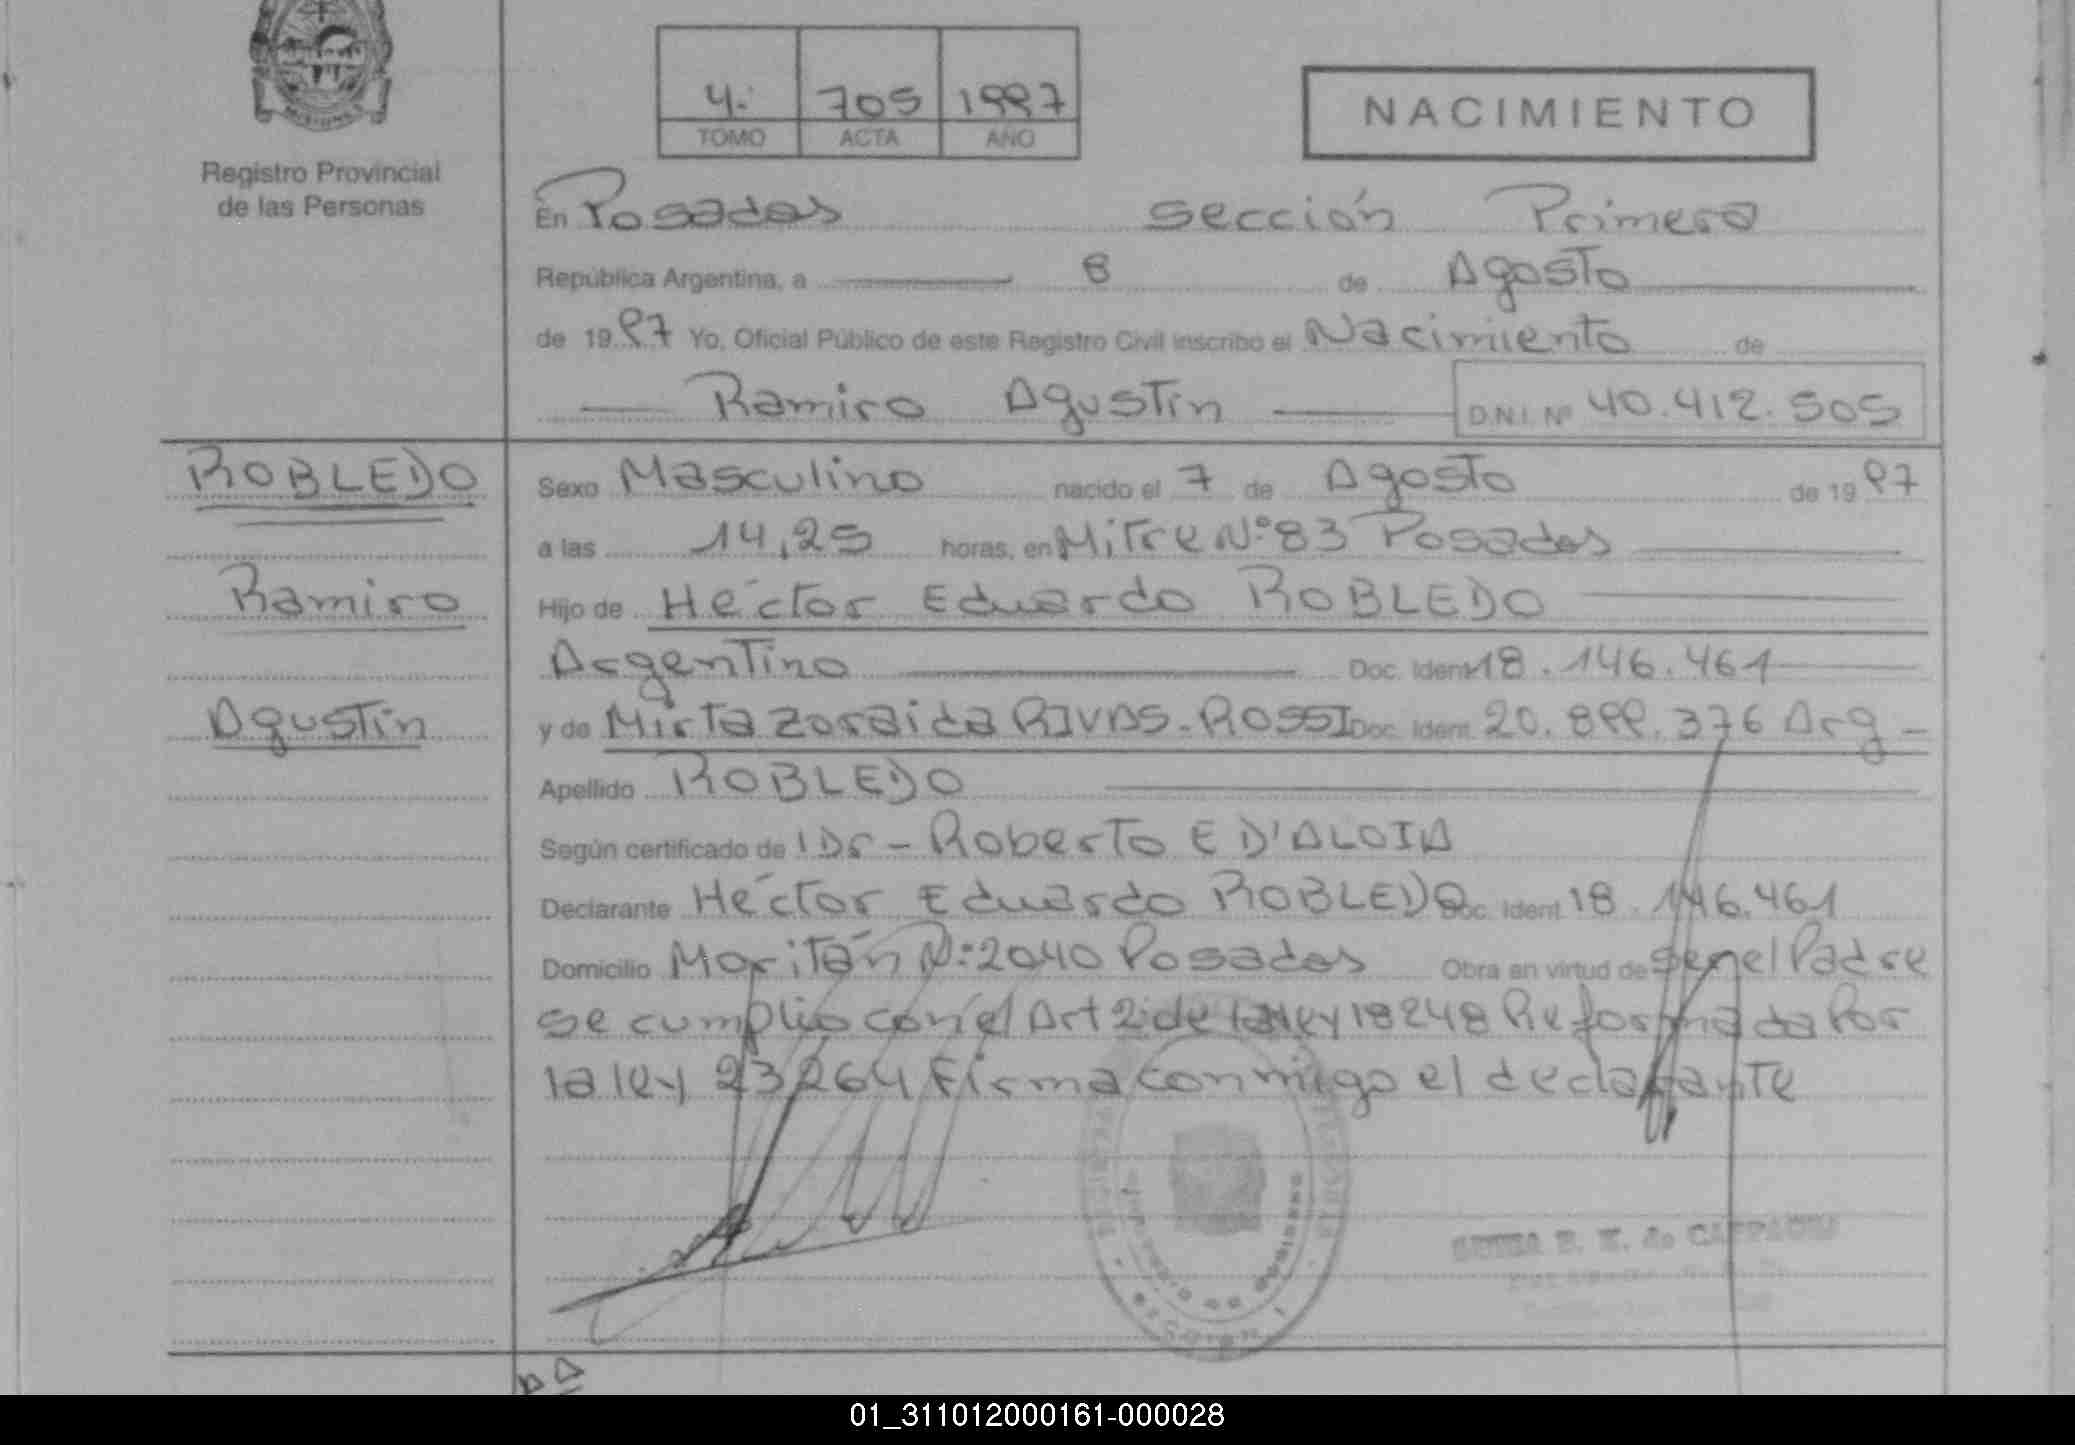 4. 705 1997
TOMO ACTA AÑO
NACIMIENTO
MISIONES
Registro Provincial
de las Personas
En Posadas Sección Primera
República Argentina, a 8 de Agosto
de 1997 Yo, Oficial Público de este Registro Civil inscribo el Nacimiento de
Ramiro Agustín D.N.I. Nº 40.412.505
ROBLEDO
Ramiro
Agustín
Sexo Masculino nacido el 7 de Agosto de 1997
a las 14,25 horas, en Mitre Nº 83 Posadas
Hijo de Héctor Eduardo ROBLEDO
Argentino Doc. Ident. 18.146.461
y de Mirta Zoraida RIVAS-ROSSI Doc. Ident. 20.899.376 Arg-
Apellido ROBLEDO
Según certificado de Dr-Roberto E D'ALOIA
Declarante Héctor Eduardo ROBLEDO Doc. Ident. 18.146.461
Domicilio Moritán Nº 2040 Posadas Obra en virtud de ser el Padre
se cumplió con el Art 2 de la ley 18248 Reformada Por
la ley 23264 Firma conmigo el declarante
01_311012000161-000028